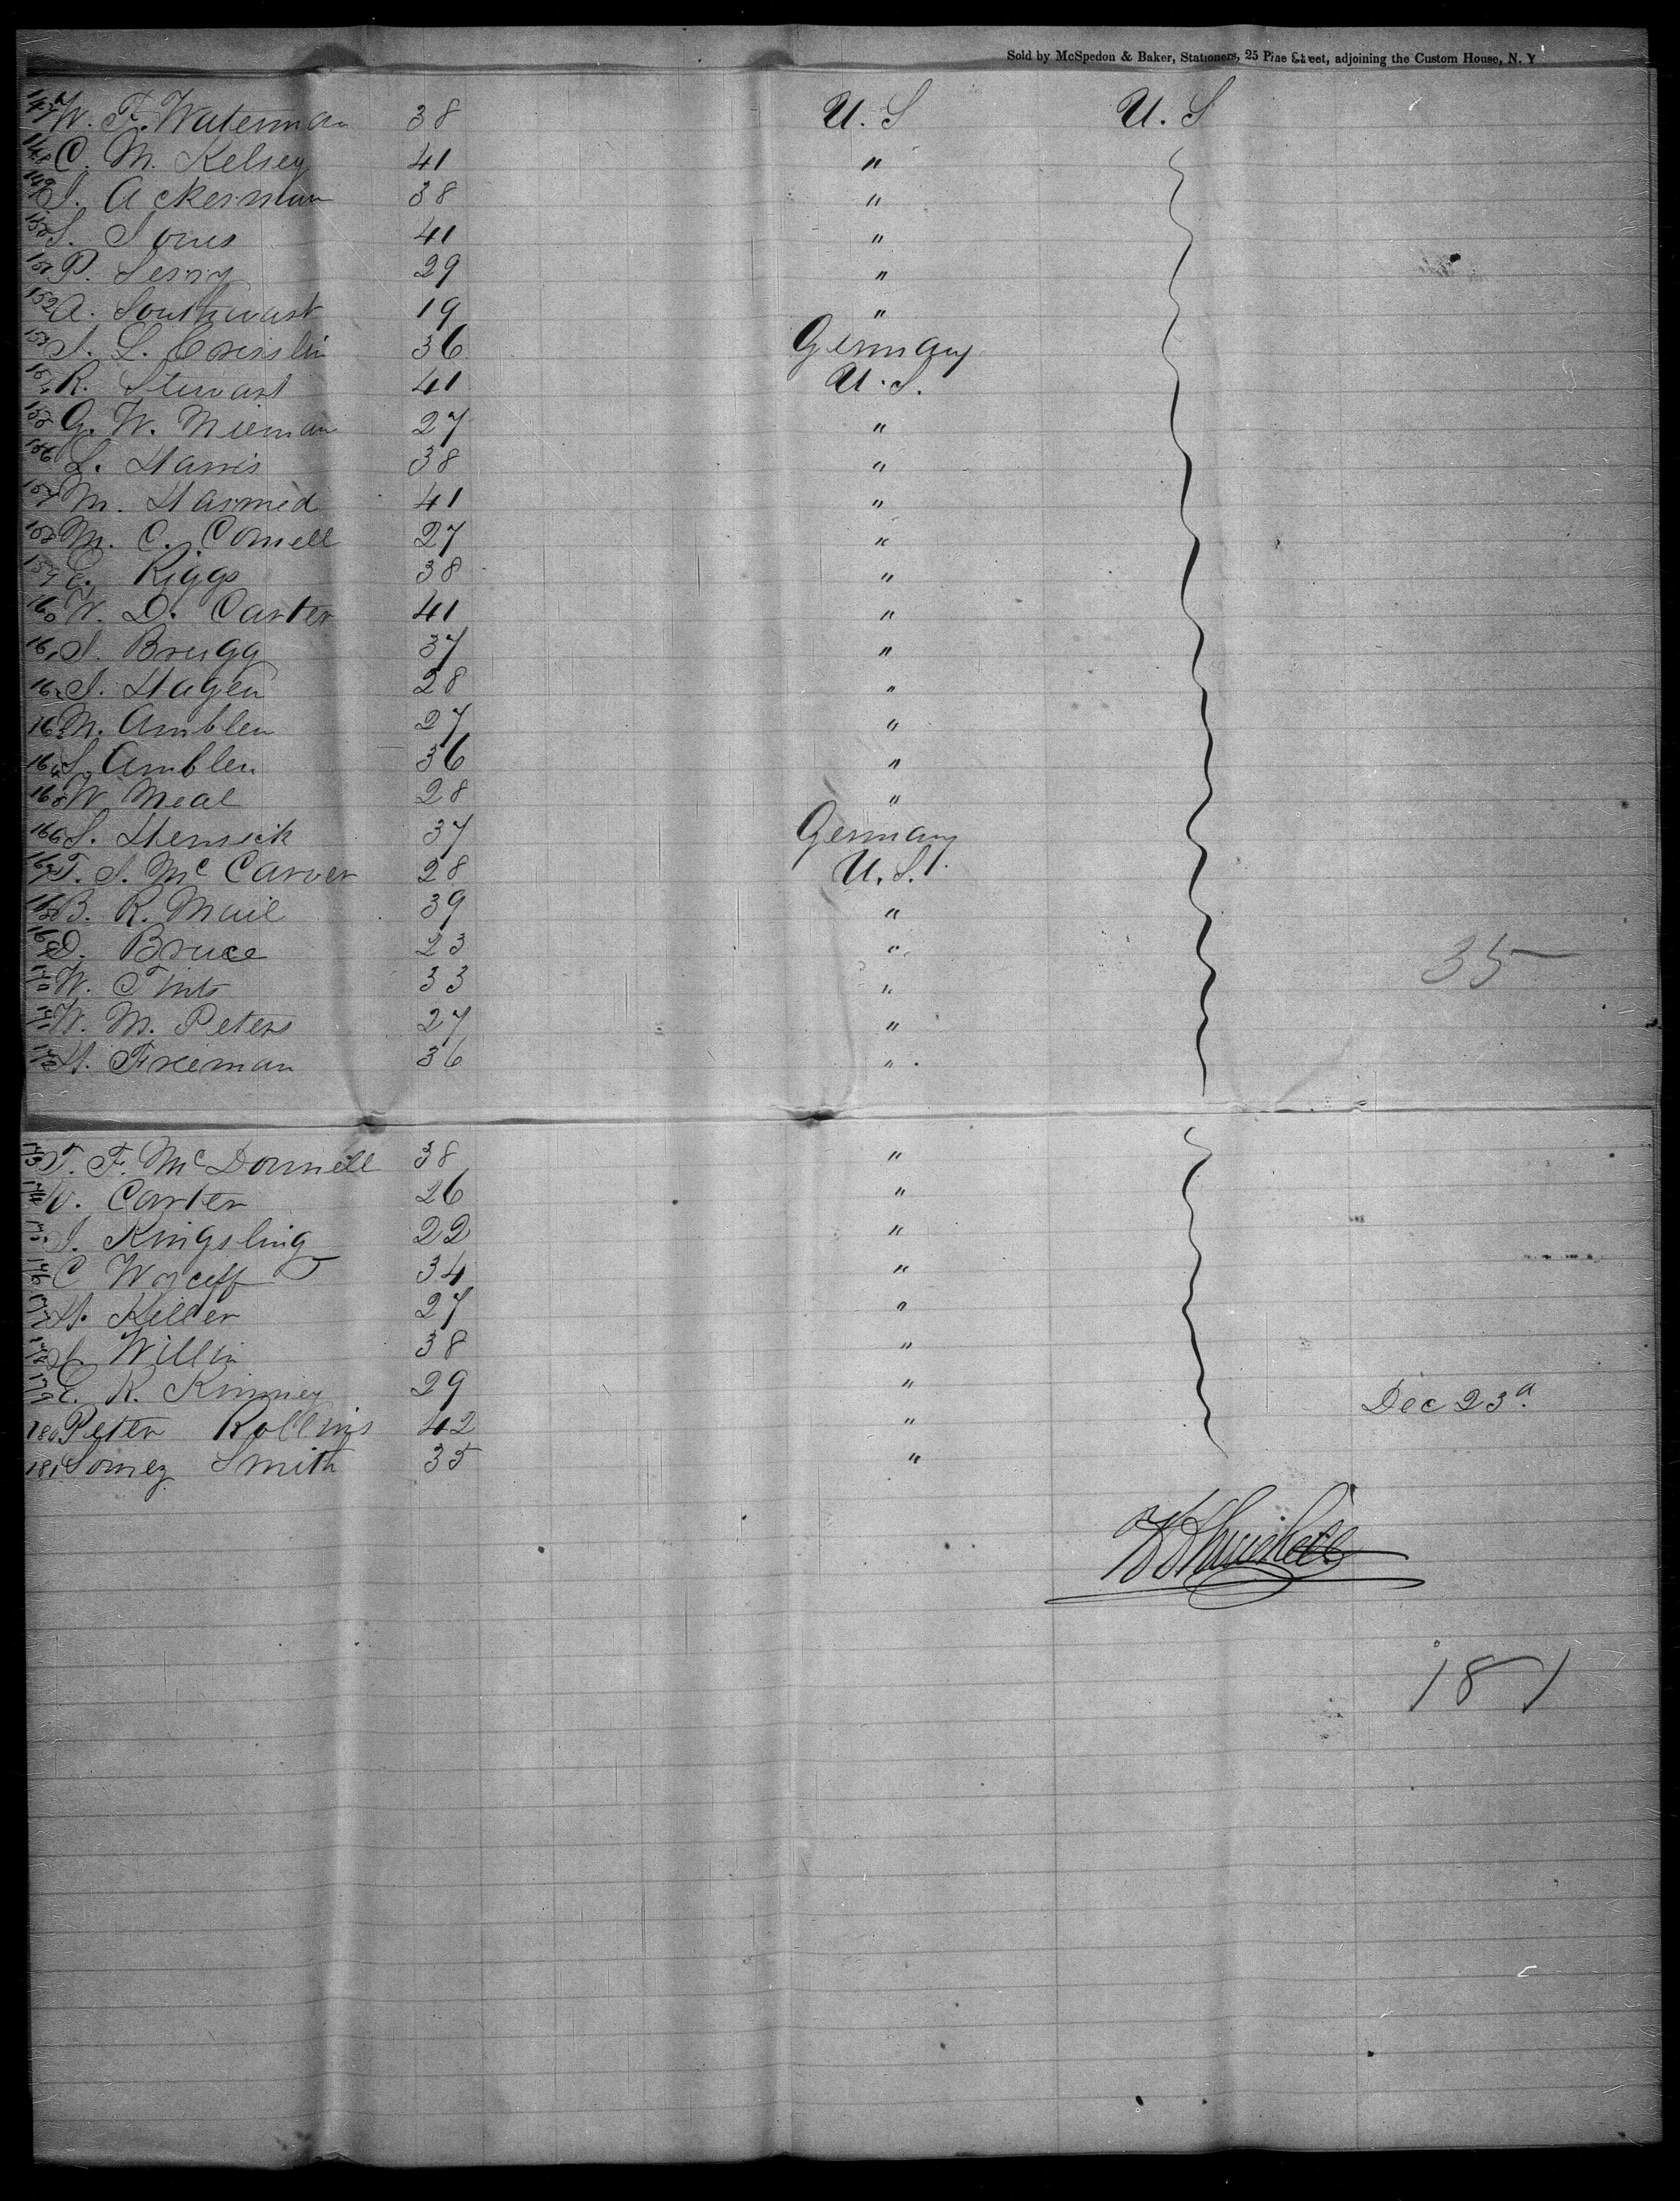 Sold by McSpedon & Baker, Stationers, 25 Pine Street, adjoining the Custom House, N. Y
147 W. F. Waterman 38 U. S U. S
148 C. M. Kelsey 41 "
149 J. Ackerman 38 "
150 S. Jones 41 "
151 P. 29 "
152 A. 19 "
153 J. L. 36 Germany
154 R. Stewart 41 U. S.
155 G. W. Nieman 27 "
156 L. Harris 38 "
157 M. Harmed 41 "
158 M. C. Cornell 27 "
159 E. Riggs 38 "
160 W. D. Carter 41 "
161 J. Brugg 37 "
162 J. Hagen 28 "
163 M. Amblen 27 "
164 S. Amblen 36 "
165 W Neal 28 "
166 S. 37 Germany
167 T. J. McCarver 28 U. S.
168 B. R. Mail 39 "
169 D. Bruce 23 "
35
170 W. 33 "
171 W. M. Peters 27 "
172 H. Freeman 36 "
173 T. F. McDonnell 38 "
174 W. Carter 26 "
175 J. Kingsling 22 "
176 C 34 "
177 H. Kelder 27 "
178 Willin 38 "
179 E. R. Kinney 29 "
Dec 23d.
180 Peter Rollins 42 "
181 Smith 35 "
181